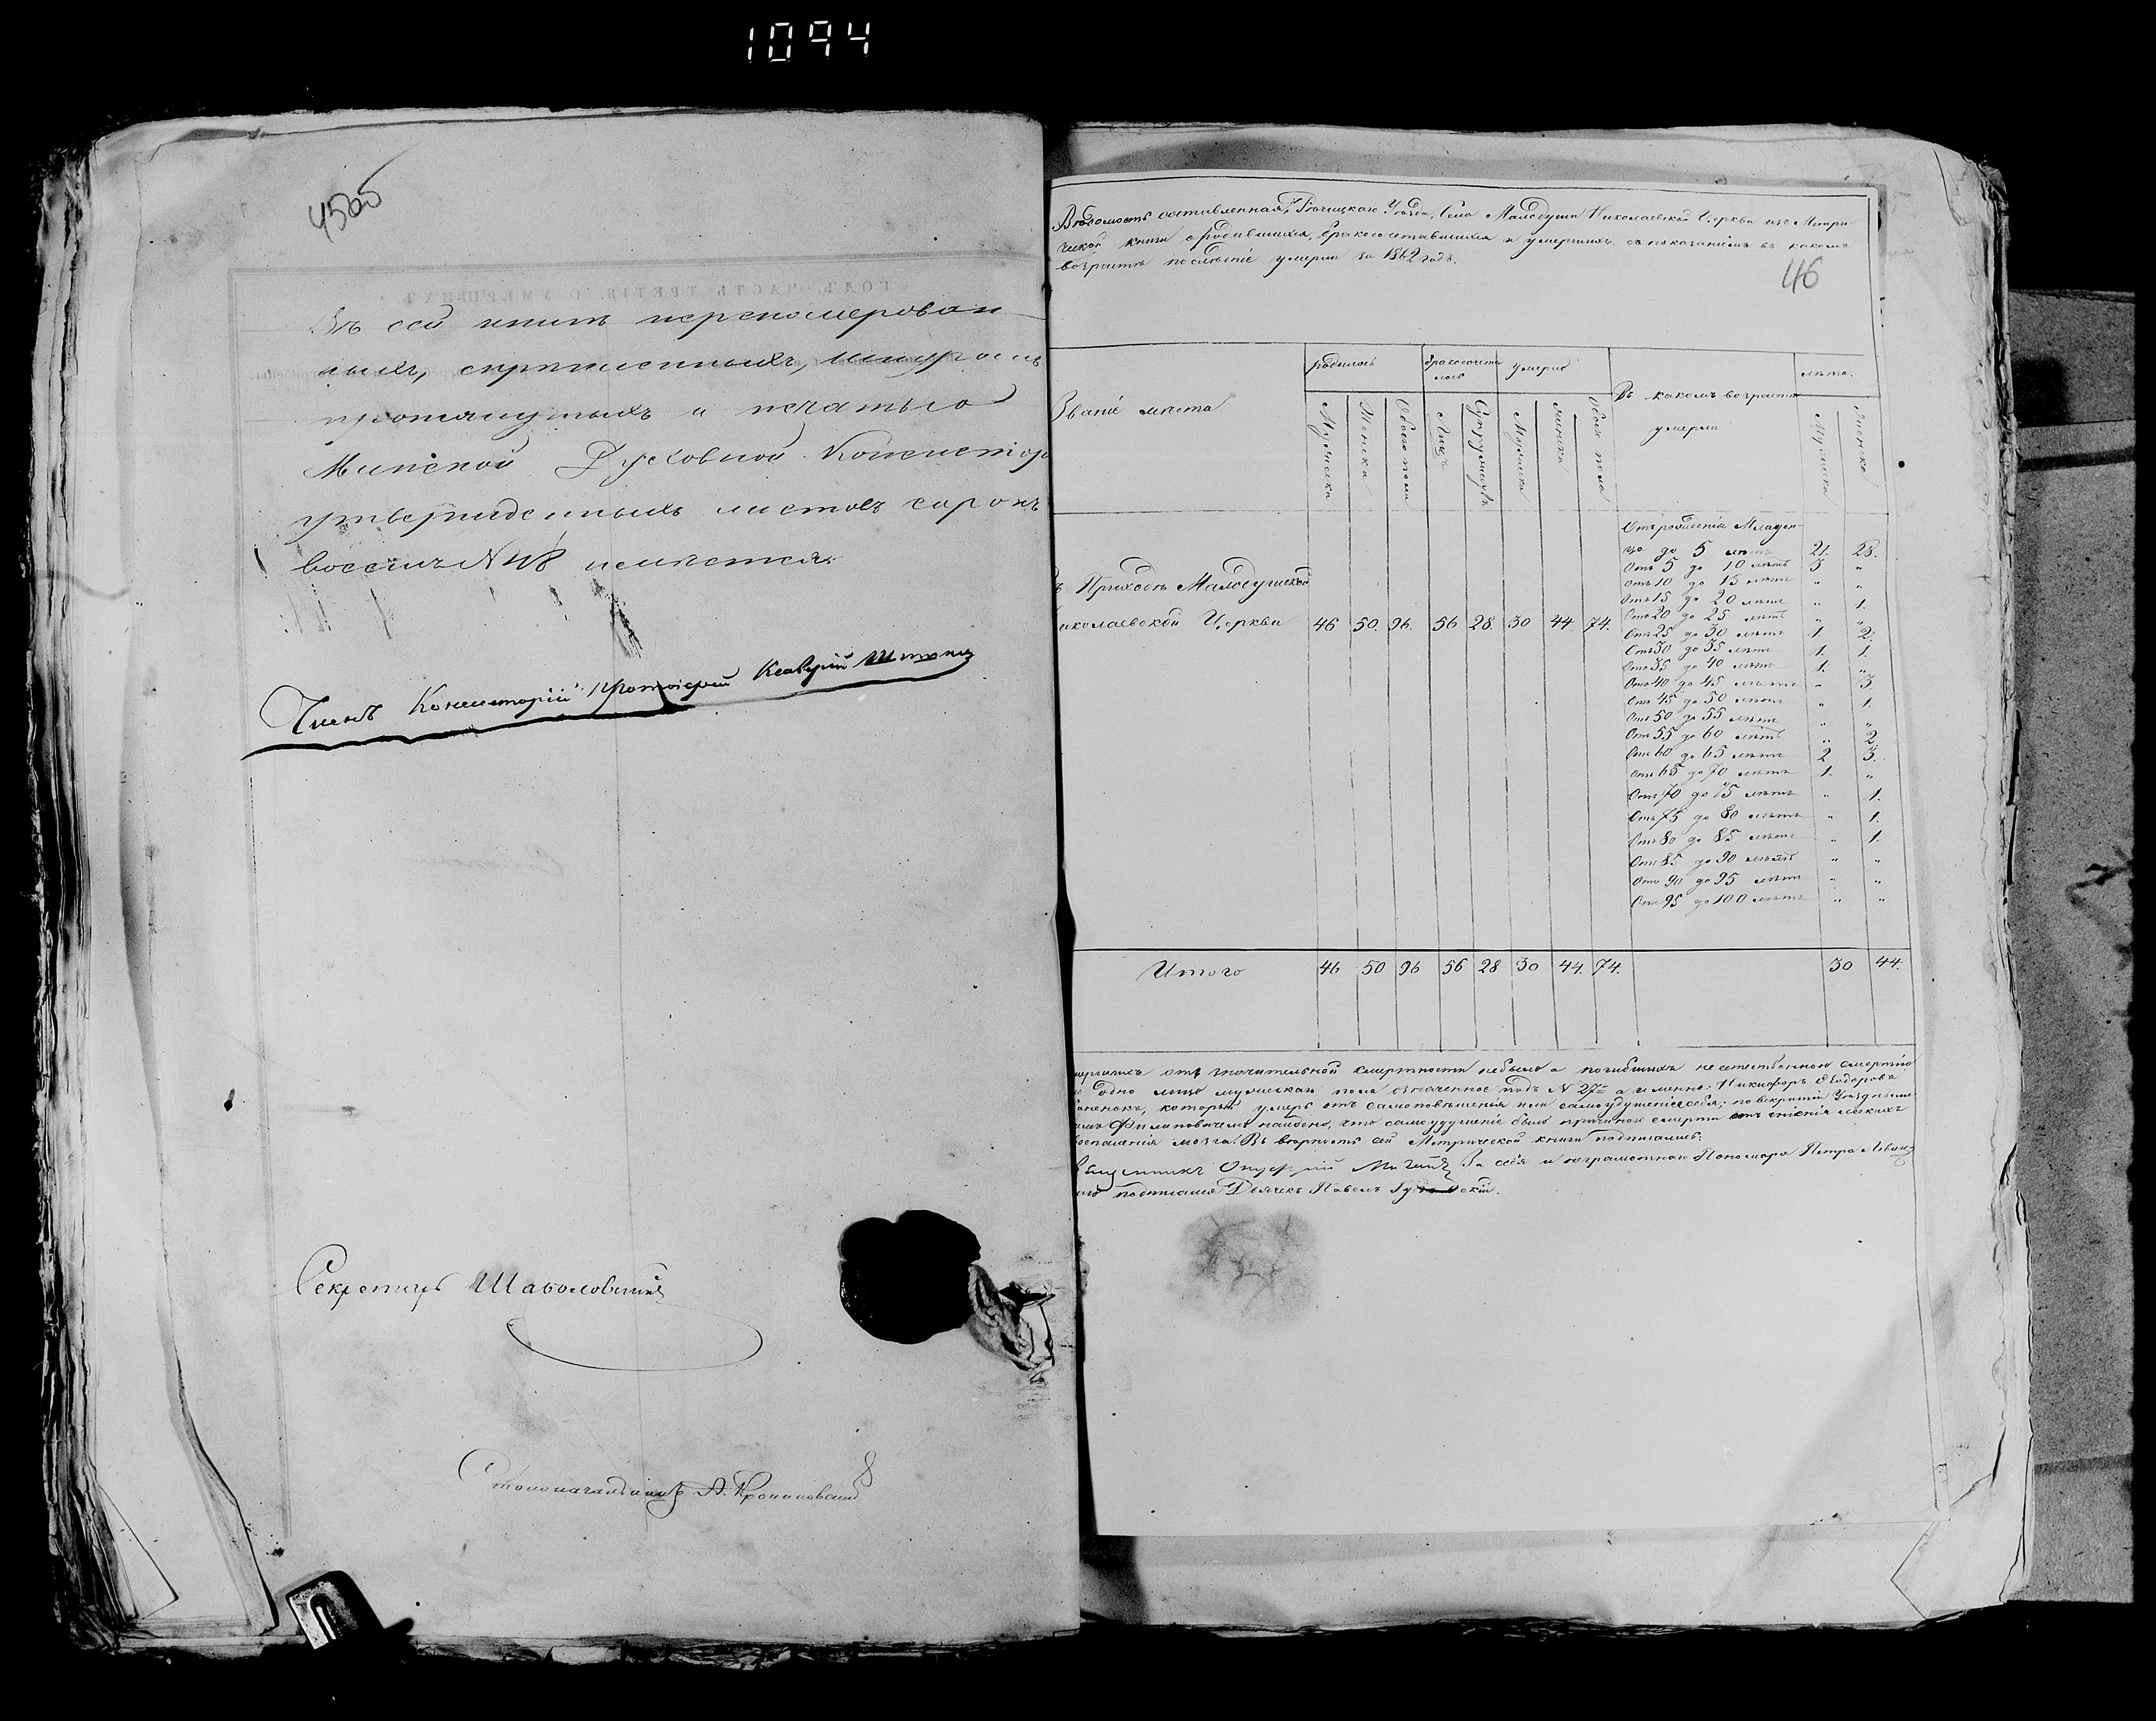 1094
4505
Въ сей книгѣ перенумерован
ныхъ, скрѣпленныхъ, шнуромъ
протянутыхъ и печатью
Минской Духовной Консистор
утвержденныхъ листовъ сорокъ
восемь N 48 имѣется.
Членъ Консисторіи Протоіерей
Секретарь
Столоначальникъ А.
Вѣдомость составленная, Рѣчицкаго Уѣзда, Села Малодуши Николаевской Церкви изъ Метри
ческой книги о родившихся, бракосочетавшихся и умершихъ, съ показаніемъ въ какомъ
возрастѣ послѣдніе умерли за 1862 годъ.
46
родилось бракосочета лось умерло Въ какомъ возрастѣ умерли лѣта.
Званіе мѣста Мужеска Женска Обоего пола Лицъ Супружествъ Мужеска женска Обоего пола Мужеска Женска
Отъ рожденія Младен
ца до 5 лѣтъ 21. 28.
Отъ 5 до 10 лѣтъ 3 "
Отъ 10 до 15 лѣтъ " "
Отъ 15 до 20 лѣтъ " 1.
Отъ 20 до 25 лѣтъ " "
Отъ 25 до 30 лѣтъ 1. 2.
Отъ 30 до 35 лѣтъ 1. 1.
Отъ 35 до 40 лѣтъ 1. "
Отъ 40 до 45 лѣтъ " 3.
Отъ 45 до 50 лѣтъ " 1.
Отъ 50 до 55 лѣтъ " "
Отъ 55 до 60 лѣтъ " 2
Отъ 60 до 65 лѣтъ 2 3.
Отъ 65 до 70 лѣтъ 1. "
Отъ 70 до 75 лѣтъ " 1.
Отъ 75 до 80 лѣтъ " 1.
Отъ 80 до 85 лѣтъ " 1.
Отъ 85 до 90 лѣтъ " "
Отъ 90 до 95 лѣтъ " "
Отъ 95 до 100 лѣтъ " "
ъ Приходѣ Малодушской
иколаевской Церкви 46 50. 96. 56 28. 30 44. 74.
Итого 46 50 96 56 28 30 44. 74. 30 44.
мершихъ отъ значительной смертности небыло а погибшихъ неестественною смертію
одно лицо мужескаго пола означенное подъ N 27 а именно: Никифоръ Ѳеодоровъ
который умеръ отъ самоповѣшенія или самоудушенія себя; по вскрытіи Уѣзднымъ
Филиповичемъ найдено, что самоудушеніе было причиною смерти отъ гніенія легкихъ
воспаленія мозга. Въ вѣрности сей Метрической книги подписались:
Онуфрій За себя и неграмотнаго Пономаря Петра
подписался Дьячекъ Павелъ